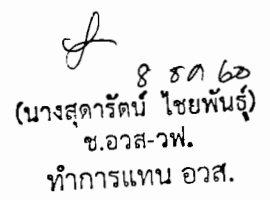 8 ธค 60
(นางสุดารัตน์ ไชยพันธุ์)
ช.อวส-วฟ.
ทำการแทน อวส.